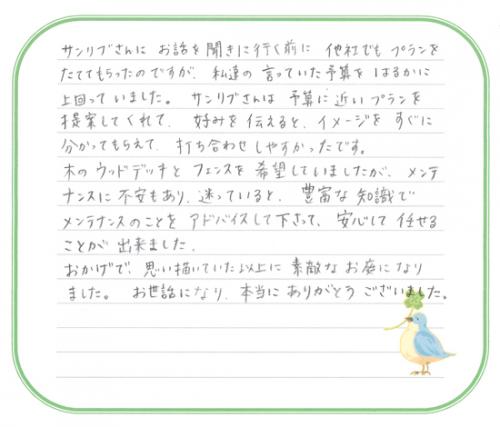 サンリブさんに お話を聞きに行く前に 他社でも プランを
たててもらったのですが、私達の 言っていた予算を はるかに
上回って いました。 サンリブさんは 予算に近い プランを
提案してくれて、 好みを 伝えると、イメージを すぐに
分かってもらえて、打ち合わせ しやすかったです。
木の ウッドデッキと フェンスを 希望していましたが、メンテ
ナンスに 不安もあり、迷っていると、 豊富な 知識で
メンテナンスのことを アドバイスして 下さって、 安心して 任せる
ことが 出来ました。
おかげで、思い描いていた以上に 素敵な お庭になり
ました。 お世話になり、本当に ありがとう ございました。